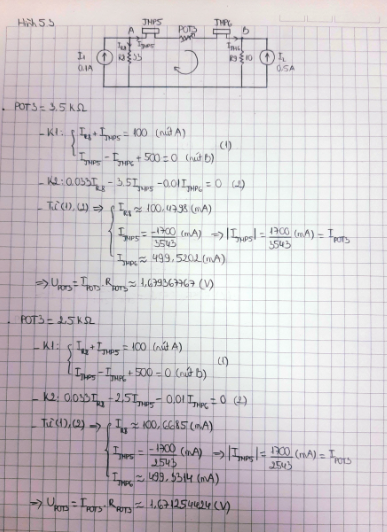 Hình 5.3
A JMP5 POT3 JMP6 B
I1 0.1A I_R8 R8 33 I_JMP5 I_JMP6 R9 10 I2 0.5A
. POT3 = 3,5 kΩ
- K1: { I_R8 + I_JMP5 = 100 (nút A)
I_JMP5 - I_JMP6 + 500 = 0 (nút B) (1)
- K2: 0.033I_R8 - 3.5I_JMP5 - 0.01I_JMP6 = 0 (2)
- Từ (1), (2) ⇒ { I_R8 ≈ 100,4798 (mA)
I_JMP5 = -1700/3543 (mA) ⇒ |I_JMP5| = 1700/3543 (mA) = I_POT3
I_JMP6 ≈ 499,5202 (mA)
⇒ U_POT3 = I_POT3 . R_POT3 ≈ 1,679367767 (V)
. POT3 = 2.5 kΩ
- K1: { I_R8 + I_JMP5 = 100 (nút A)
I_JMP5 - I_JMP6 + 500 = 0 (nút B) (1)
- K2: 0.033I_R8 - 2,5I_JMP5 - 0.01I_JMP6 = 0 (2)
- Từ (1), (2) ⇒ { I_R8 ≈ 100,6685 (mA)
I_JMP5 = -1700/2543 (mA) ⇒ |I_JMP5| = 1700/2543 (mA) = I_POT3
I_JMP6 ≈ 499,3314 (mA)
⇒ U_POT3 = I_POT3 . R_POT3 ≈ 1,671254424 (V)